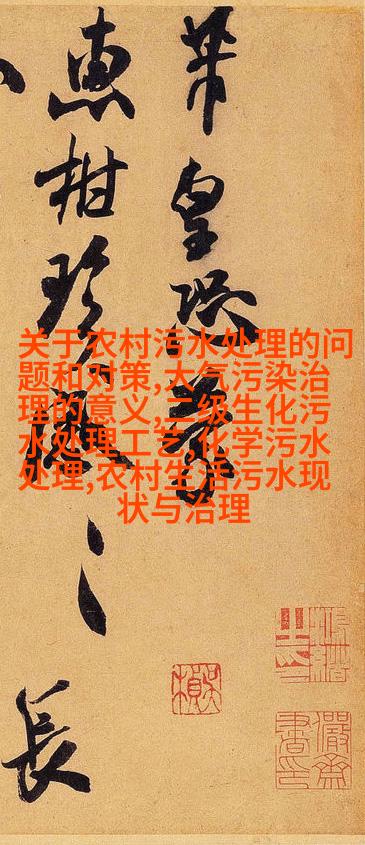 关于农村污水处理的问
题和对策,大气污染治
理的意义,三级生化污
水处理工艺,化学污水
处理,农村生活污水现
状与治理
皇恐
惠柑珍感
長